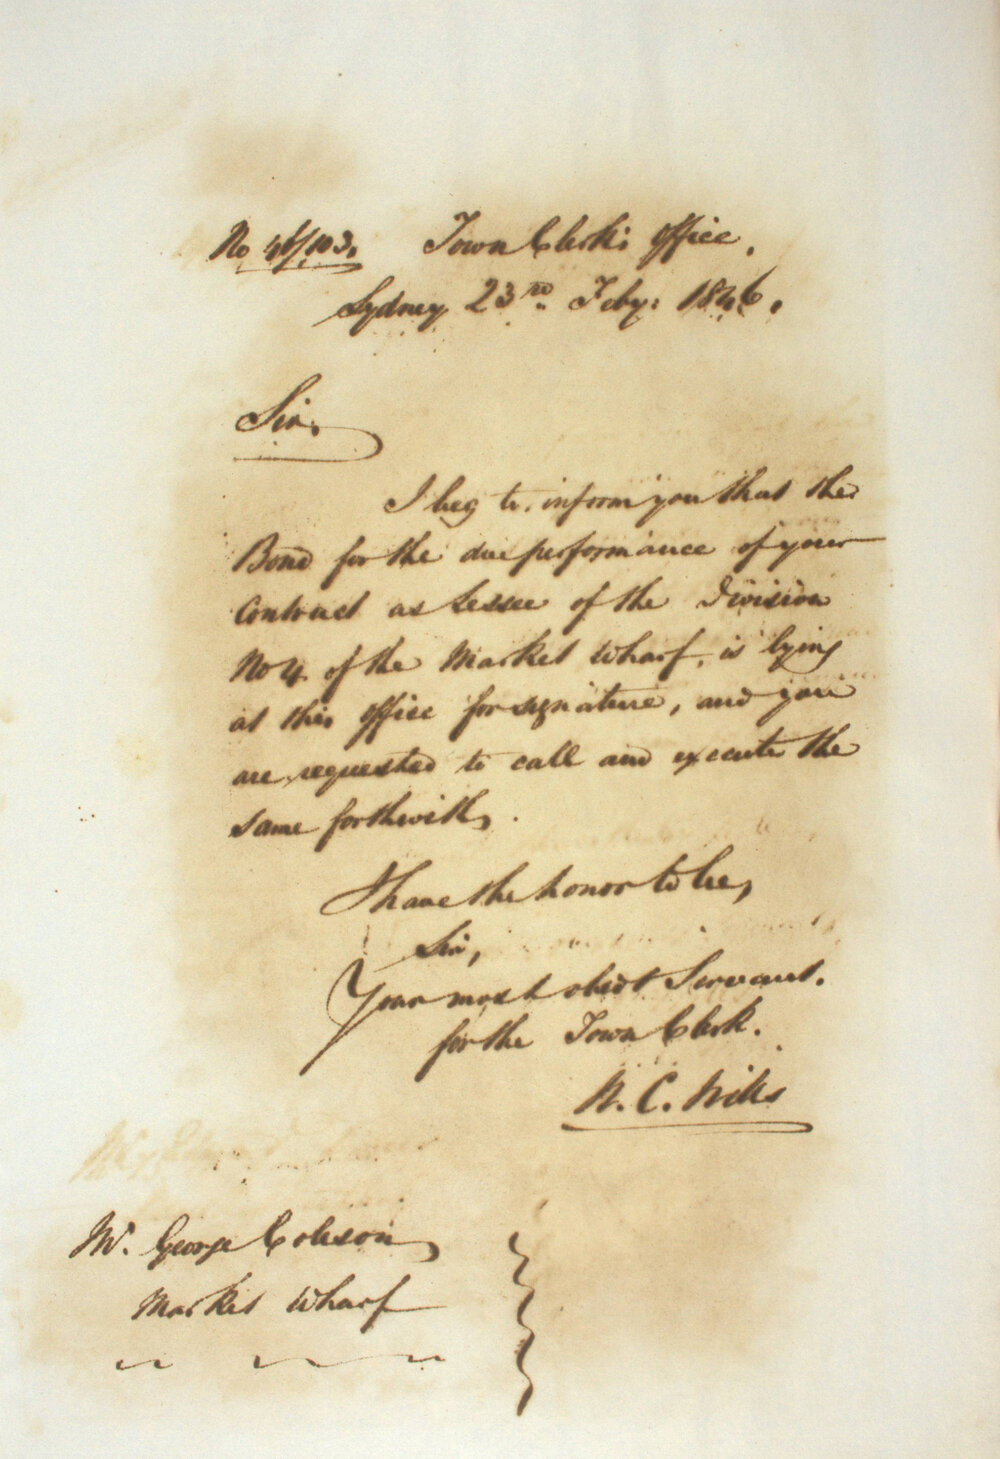 No 46/103. Town Clerk's Office,
Sydney 23rd Feby: 1846.
Sir,
I beg to inform you that the
Bond for the due performance of your
Contract as Lessee of the Division
No 4 of the Market Wharf, is lying
at this Office for signature, and you
are requested to call and execute the
same forthwith.
I have the honor to be,
Sir,
Your most obedt Servant.
for the Town Clerk.
C.
Mr. George
Market Wharf